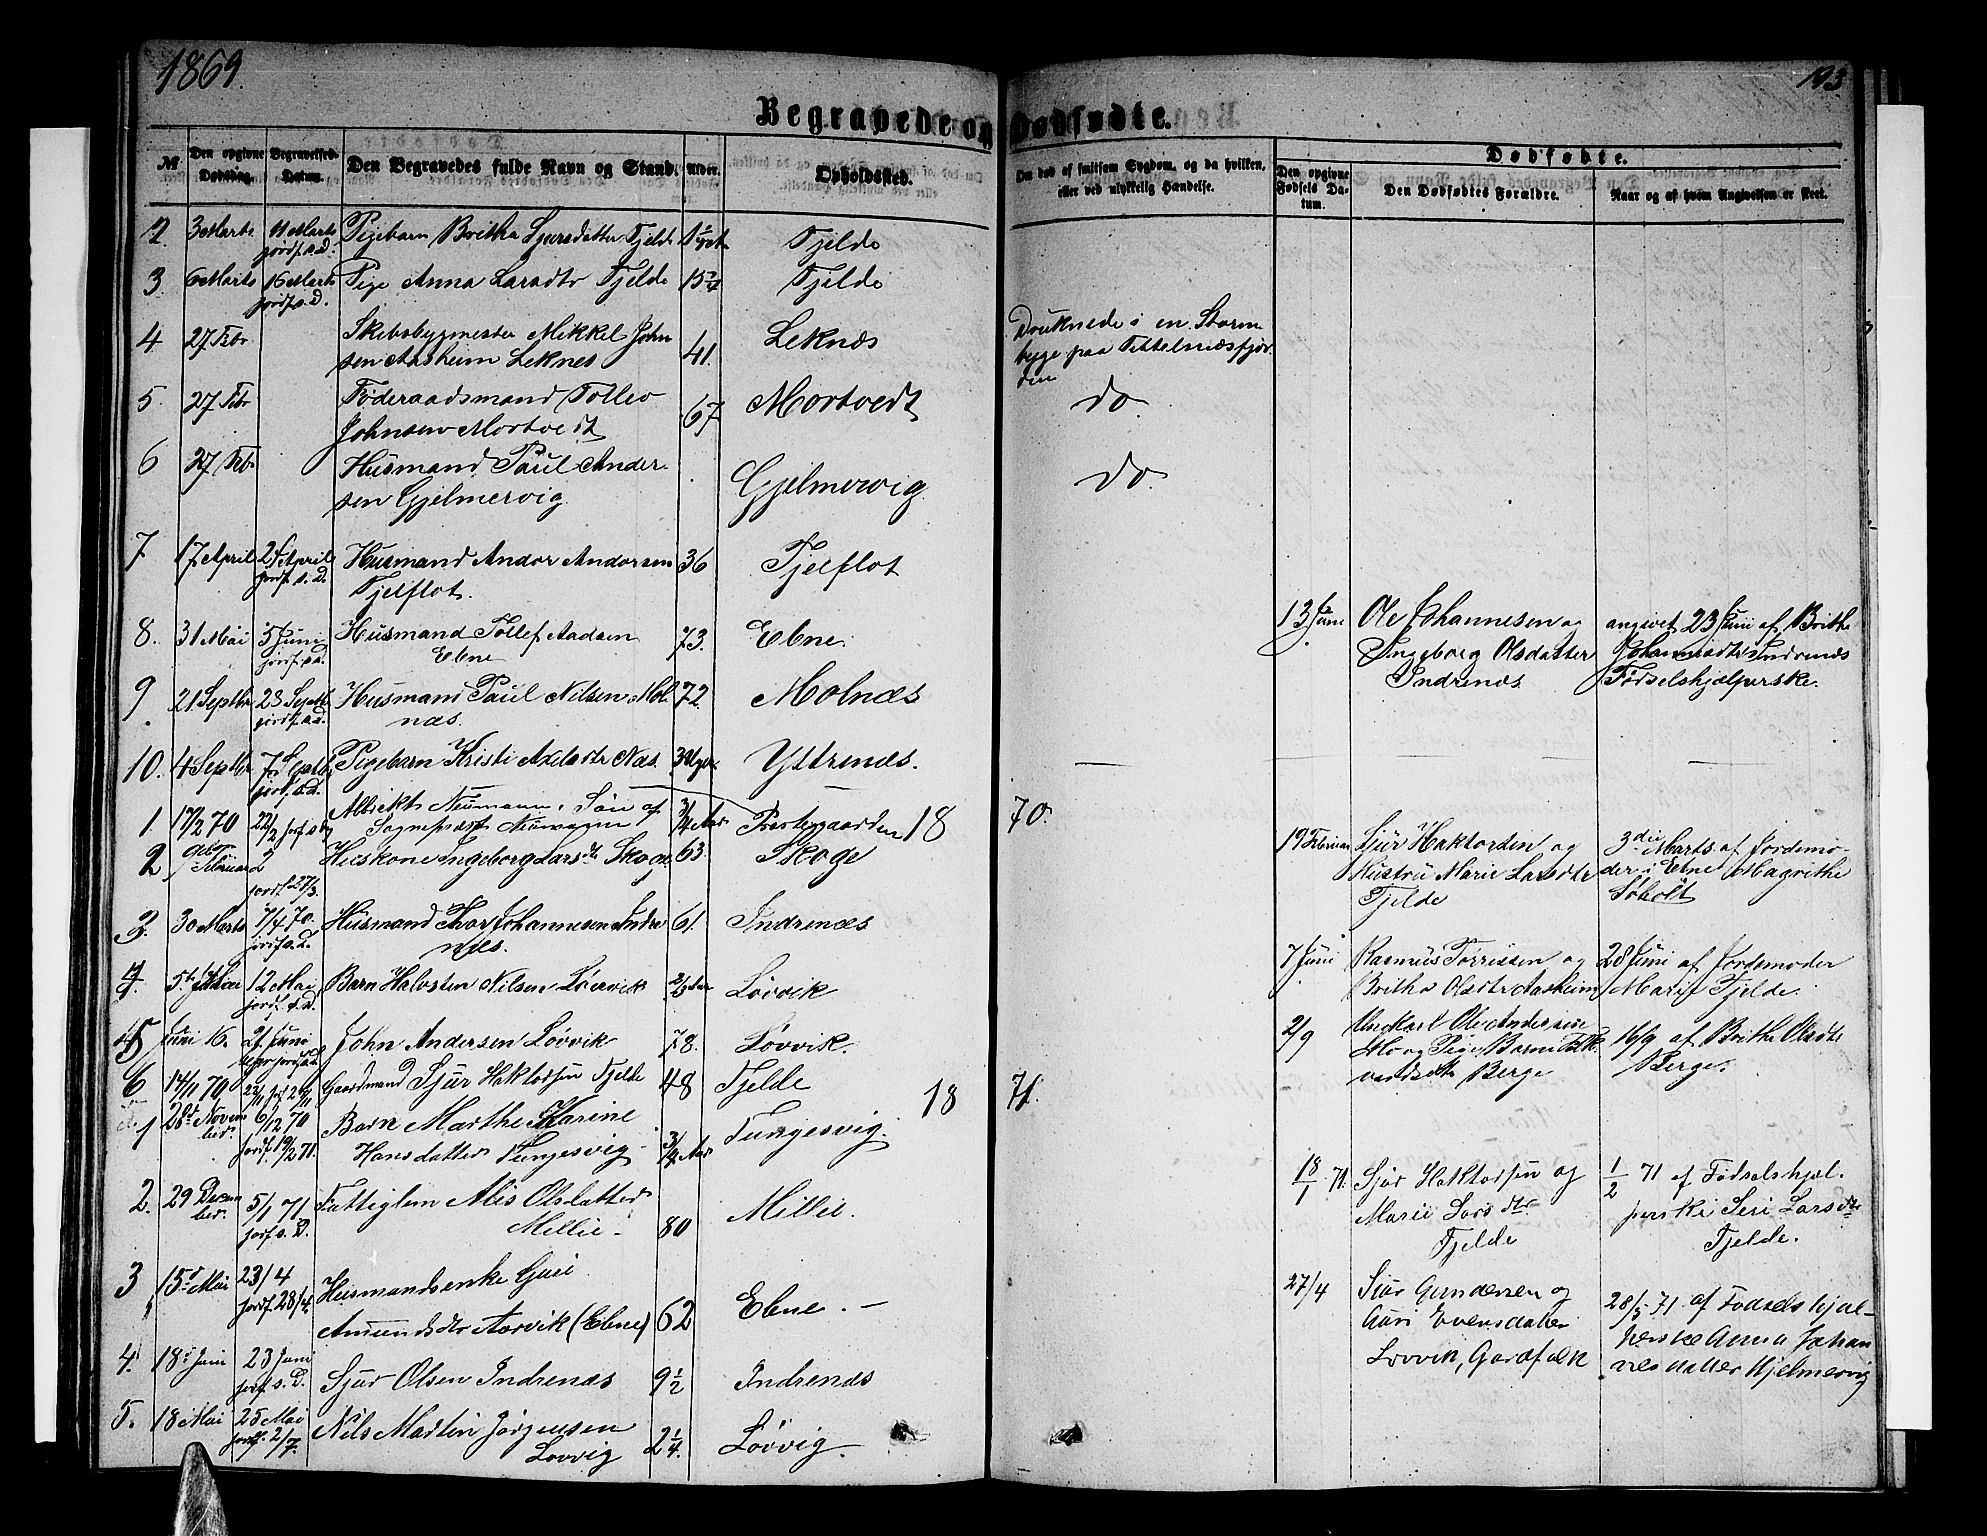 1869.
193
Begravede og Dødfødte.
№
Den opgivne Dødsdag.
Begravelses-Datum.
Den Begravedes fulde Navn og Stand.
Alder.
Opholdssted.
Om død af smitsom Sygdom, og da hvilken, eller ved ulykkelig Hændelse.
Dødfødte.
Den opgivne Fødsels Datum.
Den Dødfødtes Forældre.
Naar og af hvem Angivelsen er skeet.
2. 3 Marts 11 Marts Pigebarn Britha Sjursdatter Fjelde Fjelde
jordf. s.D.
3 6 Marts 16 Marts Pige Anna Larsdtr Fjelde 15 Fjelde
jordf. s.D.
4 27 Febr Skibsbygmester Mikkel John
sen Aasheim Leknes 41. Leknæs
Druknede i en Storm
byge paa Tittelnæsfjor
den
5 27 Febr Føderaadsmand Tollev
Johnsen Mortvedt 67 Mortvedt do.
6 27 Febr Husmand Paul Ander-
sen Gjelmervig Gjelmervig do.
7 17 April 24 April Husmand Andor Andorsen 36 Tjelflot
jordf. s.D. Tjelflot.
8. 31 Mai 5 Juni Husmand Tollef Aadsen 73. Ebne.
jordf. s.d. Ebne
9 21 Septbr 23 Septb Husmand Paul Nilsen Mol 72. Molnæs
jordf. s.d. næs.
10. 4 Septbr 7 Septb Pigebarn Kristi Axelsdtr Næs. 3 Uger Yttrenæs.
jordf. s.d.
1870.
1. 17/2 70 22/2 jordf. s.D. Albrekt Neumann, Søn af 3/4 Aar Prestegaarden
Sognepræst Neumann
2 Februar Huskone Ingeborg Larsdtr Skoge 63 Skoge
jordf 27/3.
3. 30 Marts 7/4 70. Husmand Thor Johannesen Indre 61. Indrenæs
jordf s.D. næs.
4. 5te 12 Mai Barn Halvsten Nilsen Løvvik Løvvik
jordf. s.d.
5 Juni 16. 21. Juni John Andersen Løvvik 78. Løvvik.
6 14/11 70 Gaardmand Sjur Haktorsen Fjelde 48 Fjelde
1871.
1 28de Novem 6/12 70 Barn Marthe Karine
ber. jordf. 19/2 71. Hansdatter Tungesvig 3/4 Aar Tungesvig.
2. 29 Decem 5/1 71 Fattiglem Alis Olsdatter
ber. jordf s.D. Millie - 80 Millie.
3 15de Mai 23/4 Husmandsenke Guri
jordf. 28/4. Amundsdtr Aarvik (Ebne) 62 Ebne. -
4. 18de Juni 23 Juni
jordf s. D. Sjur Olsen Indrenæs 9 1/2 Indrenæs
5. 18 Mai 25 Mai Nils Martin Jørgensen
jordf. 2/7. Lovvig 2 1/4. Løvvig
13 Juni Ole Johannesen og angivet 23 Juni af Brithe
Ingeborg Olsdatter Johannesdtr Indrenæs
Indrenæs Fødselshjælperske.
19 Februar Sjur Haktorsen og 3die Marts af Jordemo-
Hustru Marie Larsdtr der i Ebne Magrithe
Fjelde Søholt
7 Juni Rasmus Torrissen og 28 Juni af Jordemoder
Britha Olsdtr Aasheim Marie Fjelde.
2/9 Ungkarl Ole Andersen 16/9 af Brithe Olsdtr
Mo og Pige Barne Folk Berge.
vardsdtr Berge
18/1 71. Sjur Haktorsen og 1/2 71 af Fødselshjæl.
Marie Larsdtr perske Seri Larsdtr
Fjelde Fjelde.
27/4 Sjur Gundersen og 28/5 71 af Fødselshjæl-
Guri Evensdatter perske Anna Johan
Lovvik, Gardfolk nesdatter Hjelmervig